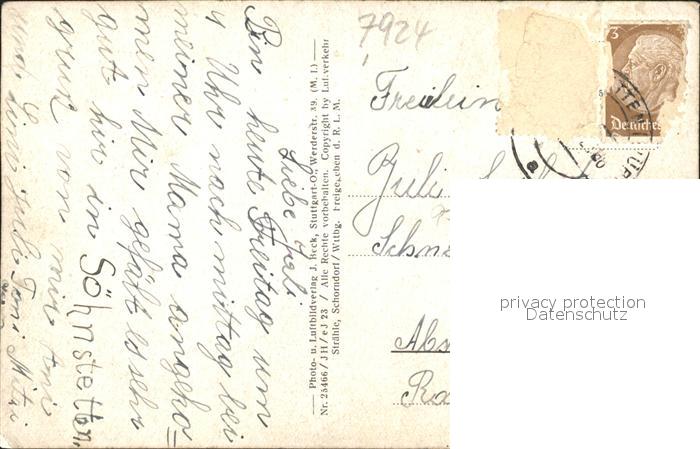 7924
3
Deutsches
Freilein
Juli
Schn
Ra
privacy protection
Datenschutz
Photo- u. Luftbildverlag J. Beck, Stuttgart-O., Werderstr. 39. (M. I.)
Nr. 25466/JH/eJ 23 / Alle Rechte vorbehalten. Copyright by Luftverkehr
Strähle, Schorndorf/Wttbg. Freigegeben d. R. L. M.
Liebe Juli
Bin heute Freitag um
4 Uhr nach mittag bei
meiner Mama angeko=
men Mir gefält es sehr
gut hir in Söhnstetten,
gruß von mir